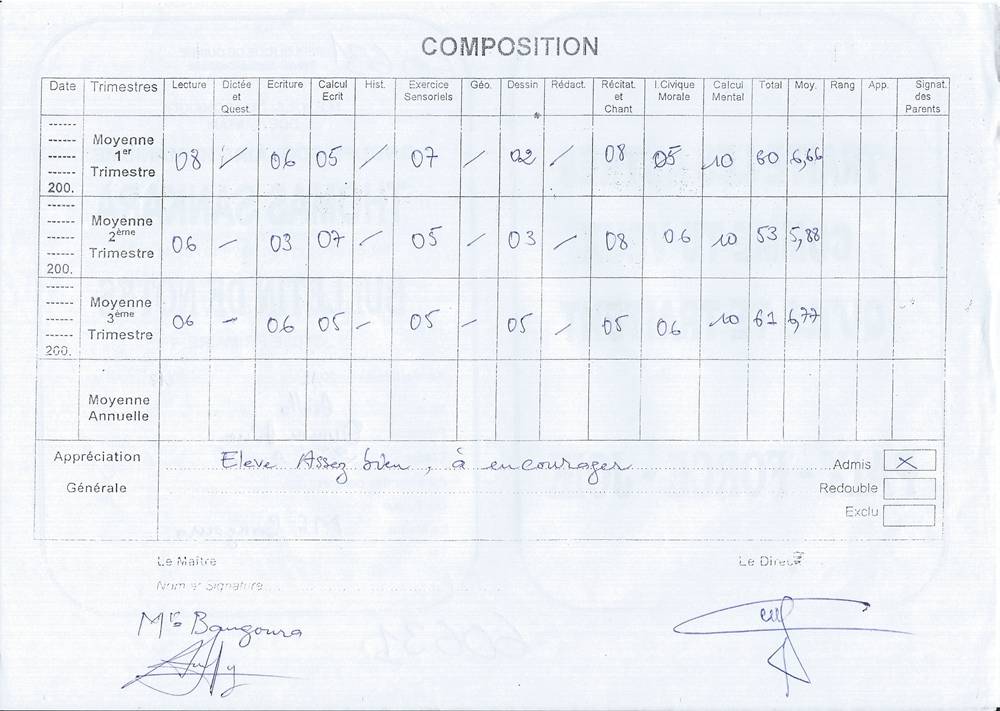 COMPOSITION
Date Trimestres Lecture Dictée et Quest. Ecriture Calcul Ecrit Hist. Exercice Sensoriels Géo. Dessin Rédact. Récitat. et Chant I.Civique Morale Calcul Mental Total Moy. Rang App. Signat. des Parents
------ ------ ------ ------ 200. Moyenne 1er Trimestre 08 / 06 05 / 07 / 02 / 08 05 10 60 6,66
------ ------ ------ ------ 200. Moyenne 2ème Trimestre 06 - 03 07 / 05 - 03 / 08 06 10 53 5,88
------ ------ ------ ------ 200. Moyenne 3ème Trimestre 06 - 06 05 - 05 - 05 / 05 06 10 61 6,77
Moyenne Annuelle
Appréciation Générale Eleve Assez bien, à encourager
Admis X
Redouble
Exclu
Le Maître Le Direct
Nom et Signature
Mrs Bangoura